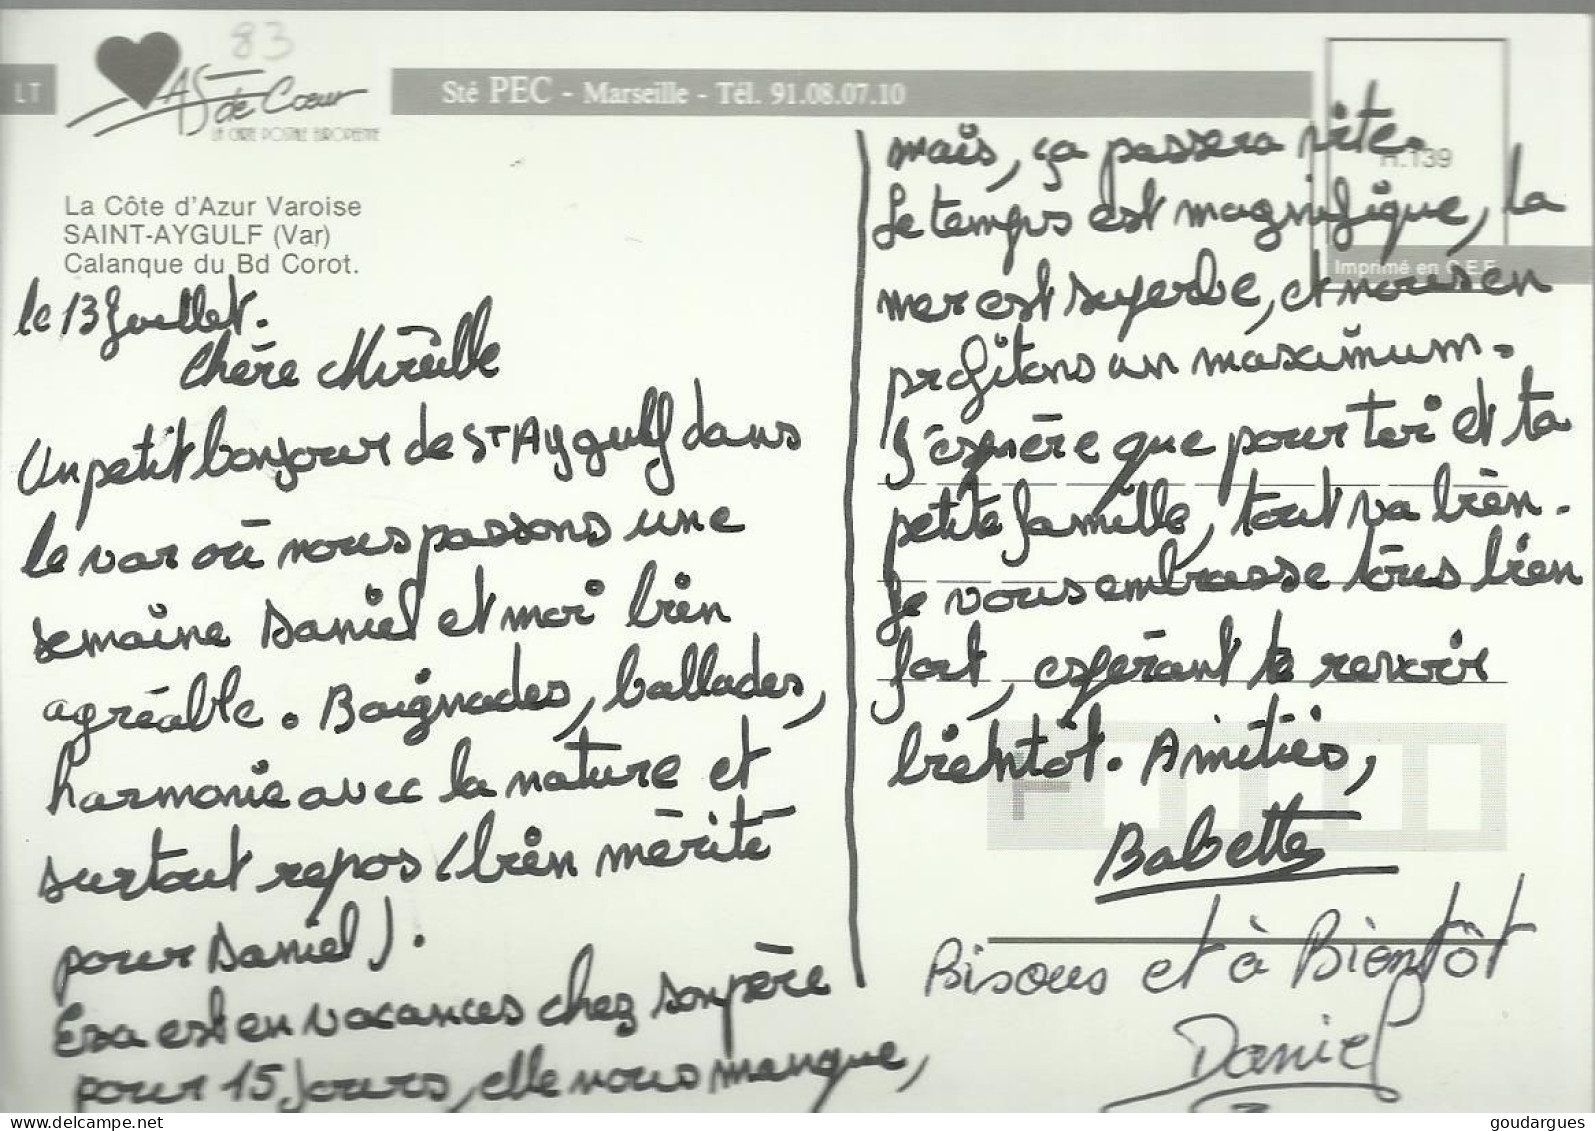 83
LT
AS de Cœur
LA CARTE POSTALE EUROPEENNE
Sté PEC - Marseille - Tél. 91.08.07.10
La Côte d'Azur Varoise
SAINT-AYGULF (Var)
Calanque du Bd Corot.
le 13 Juillet.
Chère Mireille
Un petit bonjour de St Aygulf dans
le var où nous passons une
semaine Daniel et moi bien
agréable. Baignades, ballades,
harmonie avec la nature et
surtout repos (bien mérité
pour Daniel).
est en vacances chez son père
pour 15 Jours, elle nous manque,
mais, ça passera vite.
H.139
Le temps est magnifique, la
Imprimé en C.E.E.
mer est superbe, et nous en
profitons un maximum.
J'espère que pour toi et ta
petite famille, tout va bien.
Je vous embrasse tous bien
fort, espérant te revoir
bientôt. Amitiés,
Babette
Bisous et à Bientôt
Daniel
goudargues